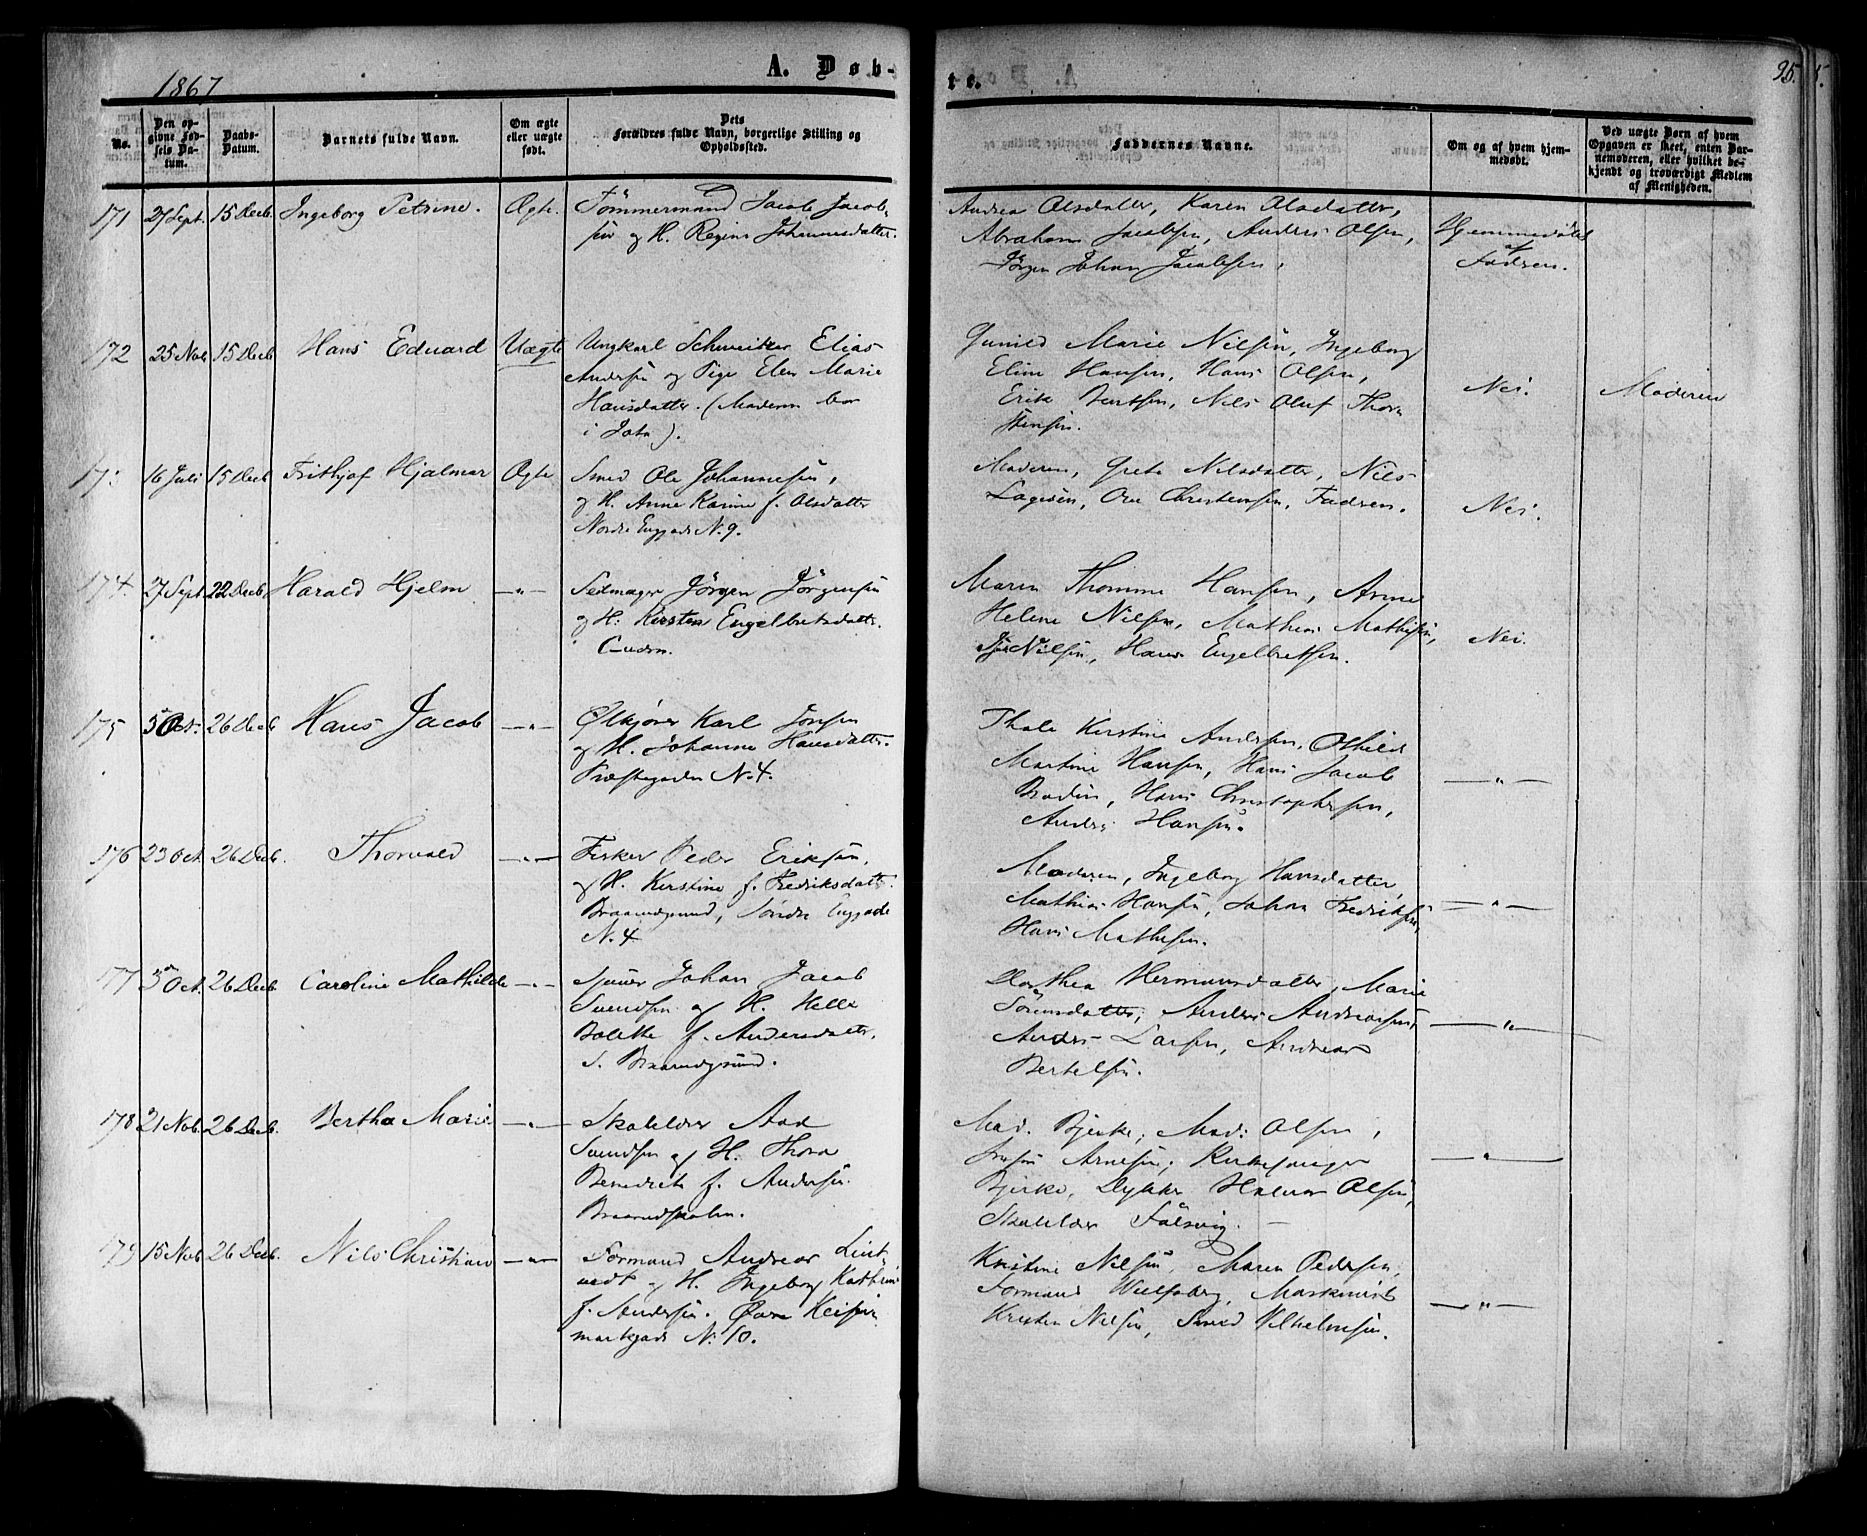 1867
A. Døb-
te.
35.
No.
Den op-
givne Fød-
sels Da-
tum.
Daabs-
Datum.
Barnets fulde Navn.
Om ægte
eller uægte
født.
Dets
Forældres fulde Navn, borgerlige Stilling og
Opholdssted.
Faddernes Navne.
Om og af hvem hjem-
medøbt.
Ved uægte Børn af hvem
Opgaven er skeet, enten Bar-
nemoderen, eller hvilket be-
kjendt og troværdigt Medlem
af Menigheden.
171 27 Sept. 15 Decb. Ingeborg Petrine. Ægte. Tømmermand Jacob Jacob-
sen og H. Regine Johannesdatter.
Andrea Olsdatter, Karen Olsdatter,
Abraham Jacobsen, Anders Olsen,
Jørgen Johan Jacobsen.
Hjemmedøbt
af
Fadren.
172 25 Nob 15 Decb Hans Eduard Uægte Ungkarl Schweitzer Elias
Andersen og Pige Elen Marie
Hansdatter. (Moderen bor
i ).
Gunild Marie Nilsen, Ingeborg
Eline Hansen, Hans Olsen,
Erik Bertsen, Nils Oluf Thor-
stensen.
Nei.
Moderen
173 16 Juli 15 Decb Frithjof Hjalmar Ægte Smed Ole Johannesen,
og H. Anne Karine f. Olsdatter
Nordre Enggade N. 9.
Moderen, Grete Nilsdatter, Nils
Lagesen, Ole Christensen, Fadren.
Nei.
174 27 Sept 22 Decb. Harald Hjelm —"— Seilmager Jørgen Jørgensen
og H. Kirsten Engelbretsdatter.
Maren Thomine Hansen, Anne
Helene Nilsen, Mathias Mathisen,
Nilsen, Hans Engelbretsen.
Nei.
175 5 Oct. 26 Decb Hans Jacob —"— Ølkjører Karl Jonsen
og H. Johanne Hansdatter.
Præstegaden N. 4.
Thale Kirstine Andersen, Othilde
Martine Hansen, Hans Jacob
Brodin, Hans Christophersen,
Anders Hansen.
—"—
176 23 Oct. 26 Decb. Thorvald —"— Fisker Peder Eriksen,
og H. Kirstine f. Fredriksdatter.
Braarudgrund, Søndre Enggade
N. 4
Moderen, Ingeborg Hansdatter,
Mathias Hansen, Johan Fredriksen,
Hans Mathisen.
—"—
177 5 Oct. 26 Decb. Caroline Mathilde —"— Johan Jacob
Svendsen og H. Helle
Bolette f. Andersdatter,
S. Braarudgrund.
Dorthea Hermansdatter, Marie
Sørensdatter, Anders Andreasen,
Anders Larsen, Andreas
Bertelsen.
—"—
178 21 Nob. 26 Decb. Bertha Marie —"— Skolelærer Aad
Svendsen og H. Thora
Benedicte f. Andersen.
Braarudskolen.
Mad. Bjerke, Mad. Olsen,
Arnesen, Kirkesanger
Bjerke, Dykker Halvor Olsen,
Skolelærer Falsvig.
—"—
179 15 Nob 26 Decb. Nils Christian —"— Formand Andreas Lint-
vedt og H. Ingeborg Kathrine
f. Andersen. Øvre Keiser
markgade N. 10.
Kristine Nilsen, Maren Pedersen,
Formand Wulfsberg, Maskinist
Kristen Nilsen, Smed Vilhelmsen.
—"—